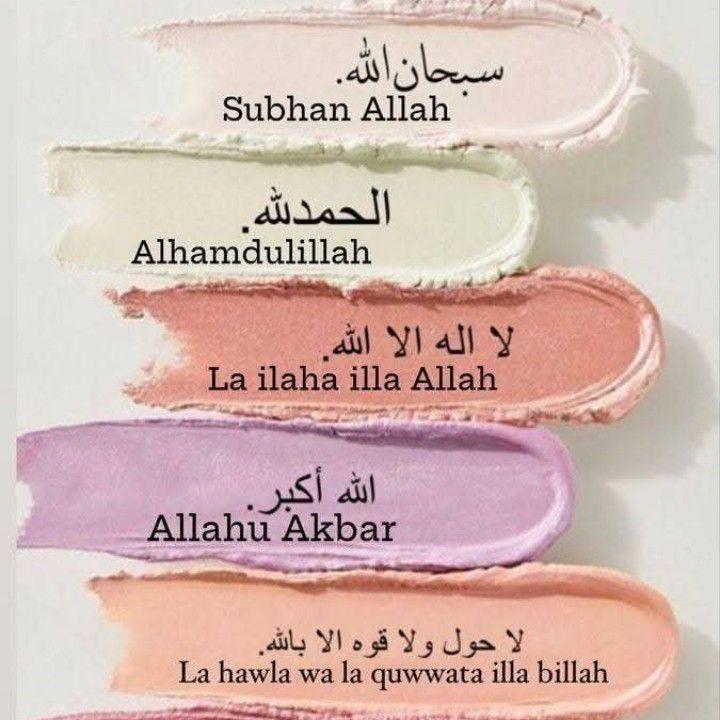 سبحان الله.
Subhan Allah
الحمدلله.
Alhamdulillah
لا اله الا الله.
La ilaha illa Allah
الله أكبر.
Allahu Akbar
لا حول ولا قوه الا بالله.
La hawla wa la quwwata illa billah